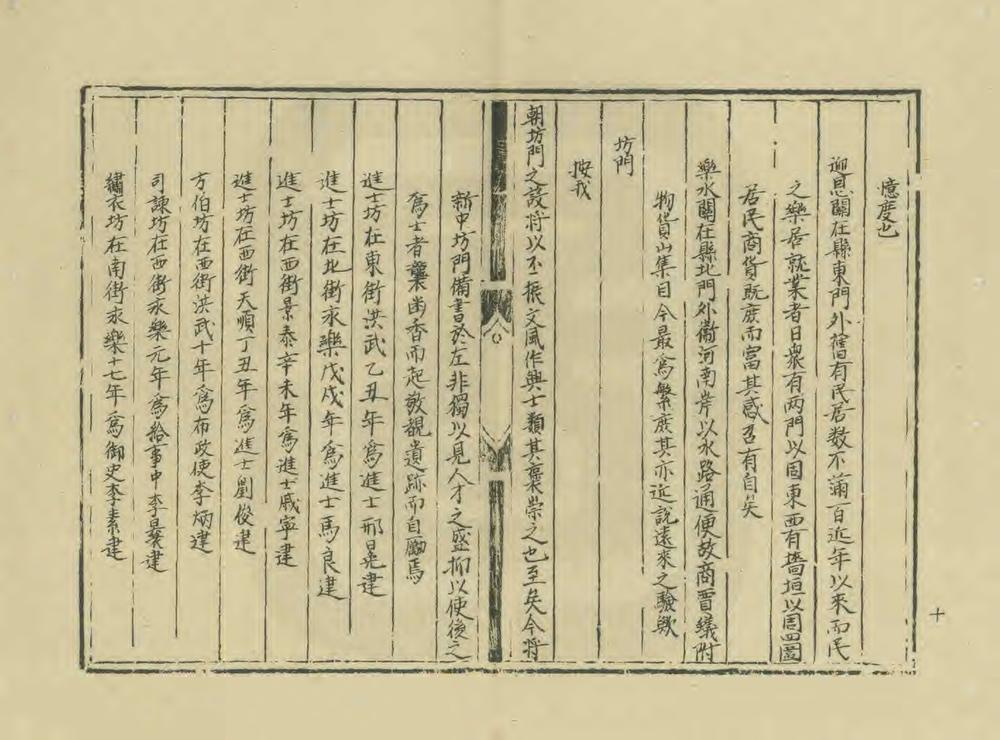 憶度也
迎恩關在縣東門外舊有民居数不滿百近年以來而民
之樂居就業者日衆有两門以固東西有墻垣以周四圍
居民商貨既庶而富其感召有自矣
樂水關在縣北門外衞河南岸以水路通便故商賈蟻附
物貨山集目今最爲繁庶其亦近說遠來之驗歟
坊門
按我
朝坊門之設將以丕振文風作興士類其褒崇之也至矣今將
新中坊門備書於左非獨以見人才之盛抑以使後之
爲士者囊幽香而起敬覩遺跡而自勵焉
進士坊在東街洪武乙丑年爲進士邢晃建
進士坊在北街永樂戊戌年爲進士馬良建
進士坊在西街景泰辛未年爲進士戚寧建
進士坊在西街天順丁丑年爲進士劉俊建
方伯坊在西街洪武十年爲布政使李炳建
司諫坊在西街永樂元年爲給事中李㬅建
繡衣坊在南街永樂十七年爲御史李素建